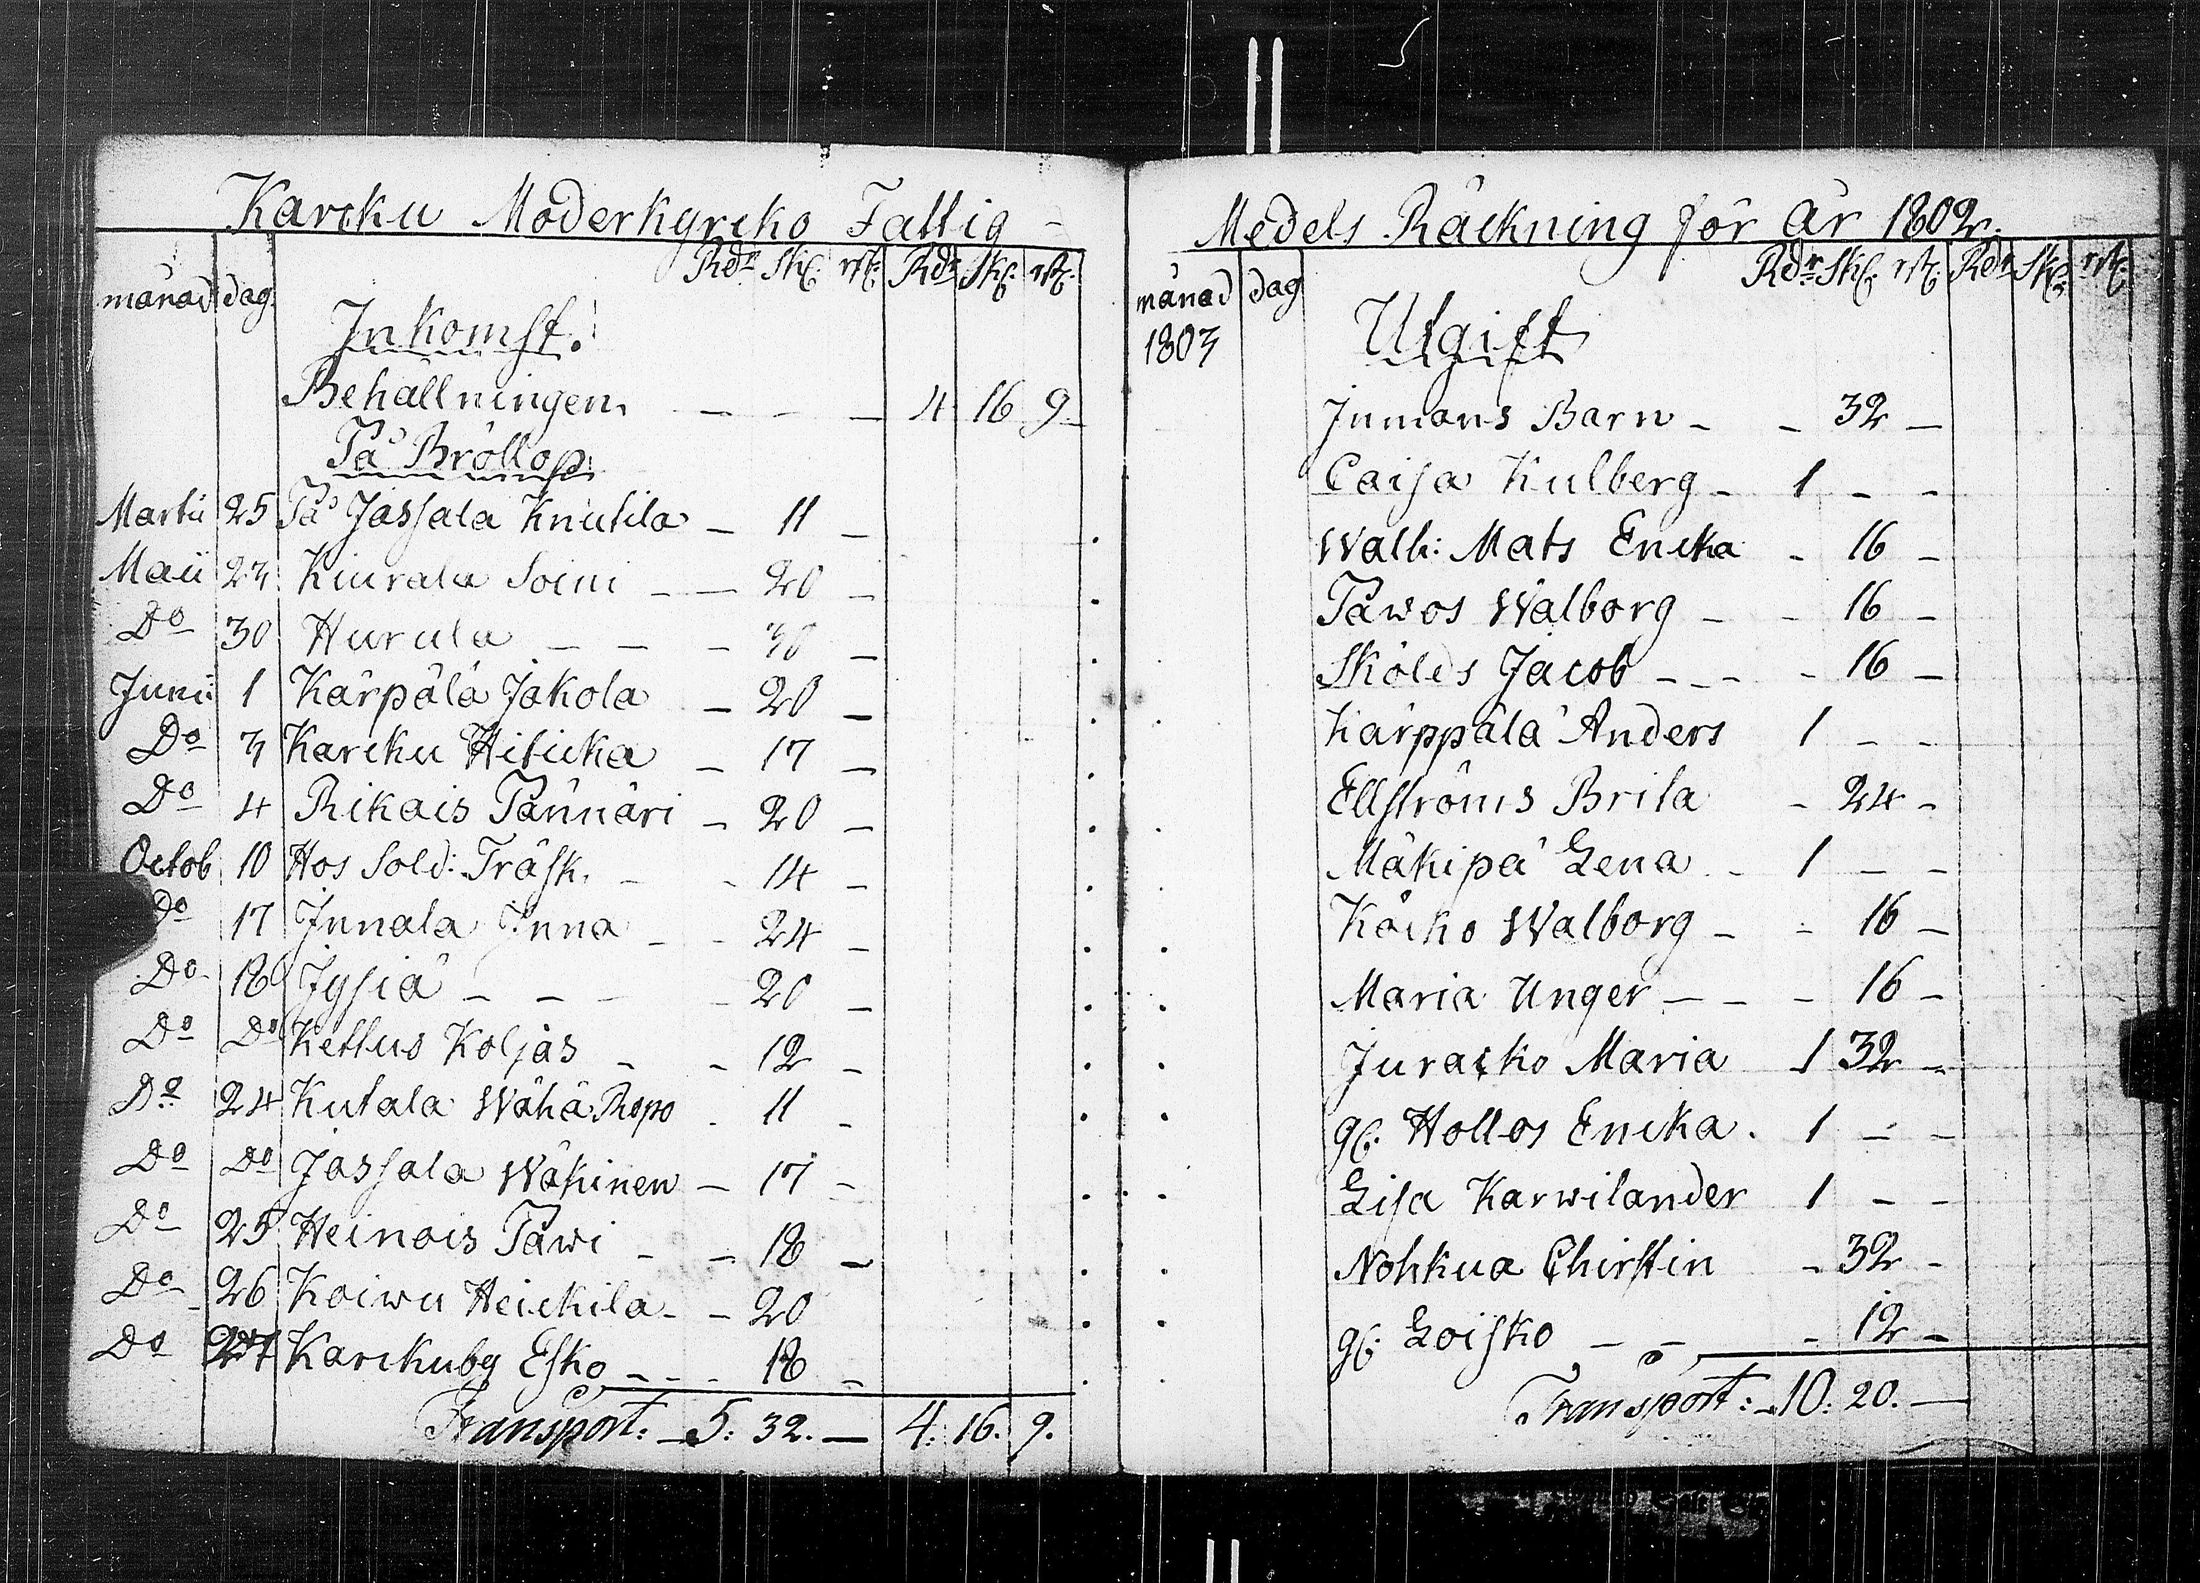 Karcku Moderkyrcko Fattig -
månad dag. Rdr Skl. rst: Rdr Skl. rst:
Inkomst.
Behållningen. - - - 4 16 9
På Bröllop.
Martii 25 På Jassala Knutila - 11 -
Maii 23 Kiurala Soini - - 20 -
Do 30 Hurula - - - 30 -
Junii 1 Kärpälä Jakola - 20 -
Do 3 Karcku Hiticka - 17 -
Do 4 Rikais Pännäri - 20 -
Octob 10 Hos Sold: Träsk. - - 14 -
Do 17 Innala Inna - - 24 -
Do 18 Jysiä - - - - 20 -
Do Do Kettus Koljas - - 12 -
Do 24 Kutala Wähä Ropo - 11 -
Do Do Jassala Wäkinen - 17 -
Do 25 Heinois Pawi - - 18 -
Do 26 Koiwu Heickilä - - 20
Do 27 Karckuby Esko - - - 18 -
Transport: - 5: 32. - 4: 16. 9.
Medels Räckning för år 1802.
månad dag Rdr Skl. rst: Rdr Skl. rst:
1803
Utgift
Inmans Barn - - 32 -
Caisa Kulberg - 1 - -
Wallb: Mats Encka - 16 -
Pawos Walborg - - 16 -
Skölds Jacob - - - - 16 -
Kärppälä Anders 1 - -
Ellströms Brita - 24 -
Mäkipä Lena - 1 - -
Köcko Walborg - - 16 -
Maria Unger - - - 16 -
Juracko Maria 1 32 -
gl. Hollos Encka. 1 - -
Lisa Karwilander 1 - -
Nohkua Chirstin - 32 -
gl. Loisko - - - 12 -
Transport: - 10: 20. -